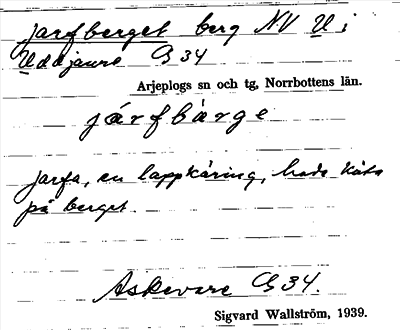 Jarfberget berg NV U i
Uddjaure G 34
Arjeplogs sn och tg, Norrbottens län.
járfbárge
Jarfa, en lappkäring, hade kåta
på berget.
Askevare G 34.
Sigvard Wallström, 1939.